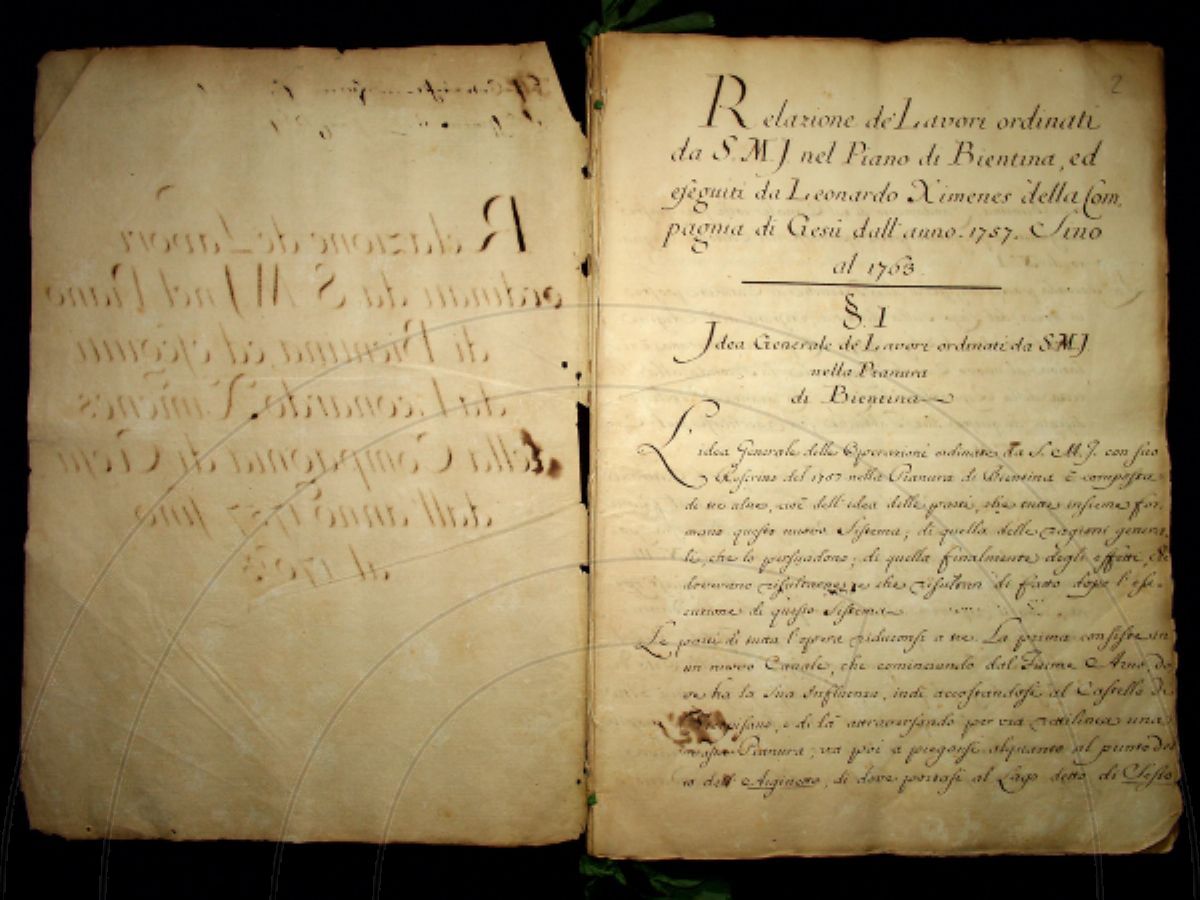 2
Relazione de' Lavori ordinati
da S. M. J. nel Piano di Bientina, ed
eseguiti da Leonardo Ximenes della Com,
pagnia di Gesù dall' anno. 1757. Sino
al 1763.
§. I
Idea Generale de' Lavori ordinati da S. M. J.
nella Pianura
di Bientina
L'idea Generale delle Operazioni ordinate da S. M. J. con suo
Rescritto del 1757 nella Pianura di Bientina è composta
di tre altre, cioè dell' idea delle parti, che tutte insieme for-
mano questo nuovo Sistema; di quella delle ragioni genera-
li, che lo persuadono; di quella finalmente degli effetti, che
dovevano risultarne, e che risultan di fatto dopo l' ese-
cuzione di questo Sistema
Le parti di tutta l' opera riduconsi a tre. La prima consiste in
un nuovo Canale, che cominciando dal Fiume Arno, do
ve ha la sua Influenza, indi accostandosi al Castello di
e di là attraversando per via rettilinea una
vasta Pianura, va poi a piegarsi alquanto al punto det
to dell' Arginetto, di dove portasi al Lago detto di Sesto
Relazione de Lavori
ordinati da S. M. J nel Piano
di Bientina, ed eseguiti
da Leonardo Ximenes
della Compagnia di Gesù
dall' anno 1757 sino
al 1763